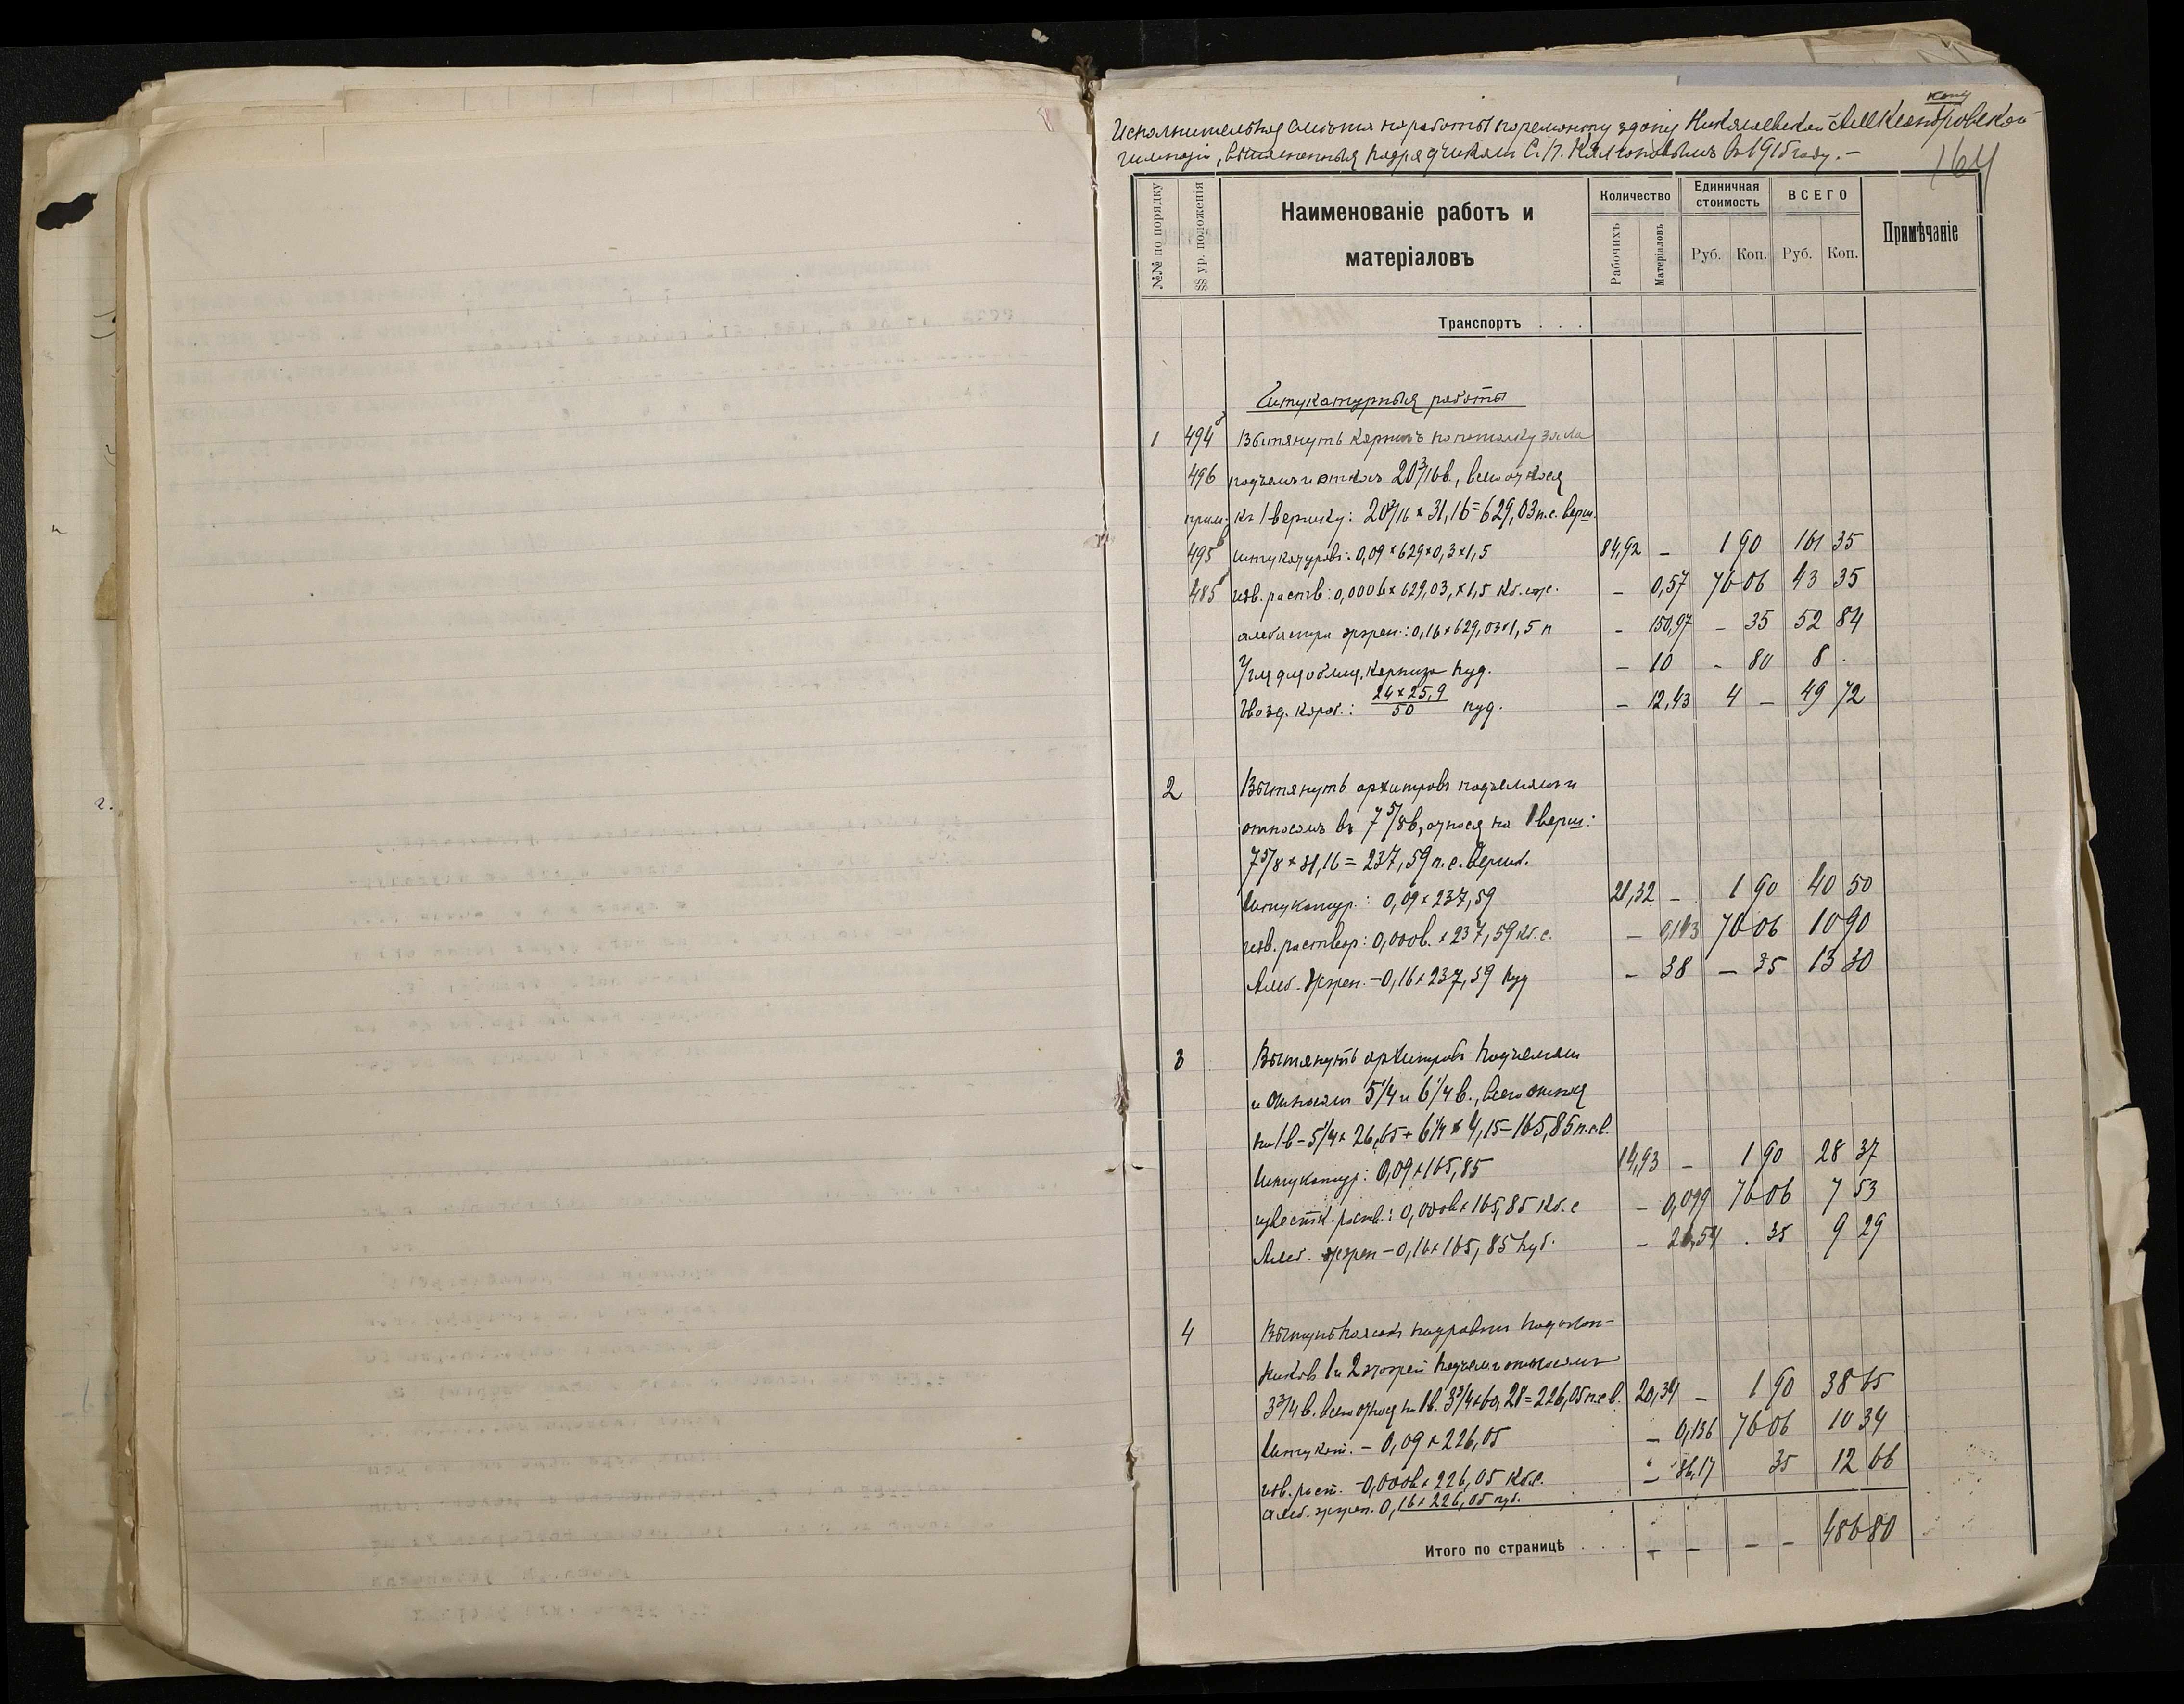 кому
Исполнительная смета на работы по ремонту зданiя Николаевской Александровской
гимназiи, выполненныя подрядчикомъ С. П. въ 1915 году. –
164
№№ по порядку
§§ ур. положенiя
Наименованiе работъ и
матерiаловъ
Количество
Рабочихъ
Матерiаловъ
Единичная
стоимость
Руб. Коп.
ВСЕГО
Руб. Коп.
Примѣчанiе
Транспортъ . . .
Штукатурныя работы
1 494 Вытянуть карнизъ по потолку зала
496 подъемъ и относъ 20 3/16 в., всего относя
прим. къ 1 вершку: 20 3/16 × 31,16 = 629,03 п.с. верш.
495 штукатуровъ: 0,09 × 629 × 0,3 × 1,5 84,92 – 1 90 161 35
485 изв. раств.: 0,0006 × 629,03, × 1,5 кб. саж. – 0,57 76 06 43 35
алебастра жжен.: 0,16 × 629,03 × 1,5 п – 150,97 – 35 52 84
Угля для карниза пуд. – 10 – 80 8 .
Гвозд. : 24 × 25,9 / 50 пуд. – 12,43 4 – 49 72
2 Вытянуть архитравъ подъемомъ и
относомъ въ 7 5/8 в, относя на 1 верш:
7 5/8 × 31,16 = 237,59 п. с. вершк.
Штукатур.: 0,09 × 237,59 21,32 – 1 90 40 50
изв. раствор: 0,0006. × 237,59 кб. с. – 0,143 76 06 10 90
Алеб. жжен. – 0,16 × 237,59 пуд – 38 – 35 13 30
3 Вытянуть архитравъ подъемомъ
и относомъ 5 1/4 и 6 1/4 в., всего относя
на 1 в – 5 1/4 × 26,65 + 6 1/4 × 4,15 – 165,85 п.с.в.
Штукатур: 0,09 × 165,85 14,93 – 1 90 28 37
известк. раств.: 0,0006 × 165,85 кб. с – 0,099 76 06 7 53
Алеб. жжен – 0,16 × 165,85 пуд. – 26,54 . 35 9 29
4 Вытянуть поясокъ подокон-
никовъ 1 и 2 этажей подъем и относомъ
3 3/4 в. всего относя на 1 в. 3 3/4 × 60,28 = 226,05 п.с в. 20,34 – 1 90 38 65
Штукат. – 0,09 × 226,05 – 0,136 76 06 10 34
изв. раст. – 0,0006 × 226,05 кб.с. – 36,17 35 12 66
алеб. жжен. 0,16 × 226,05 пуд.
Итого по страницѣ . . . – – – – 486 80